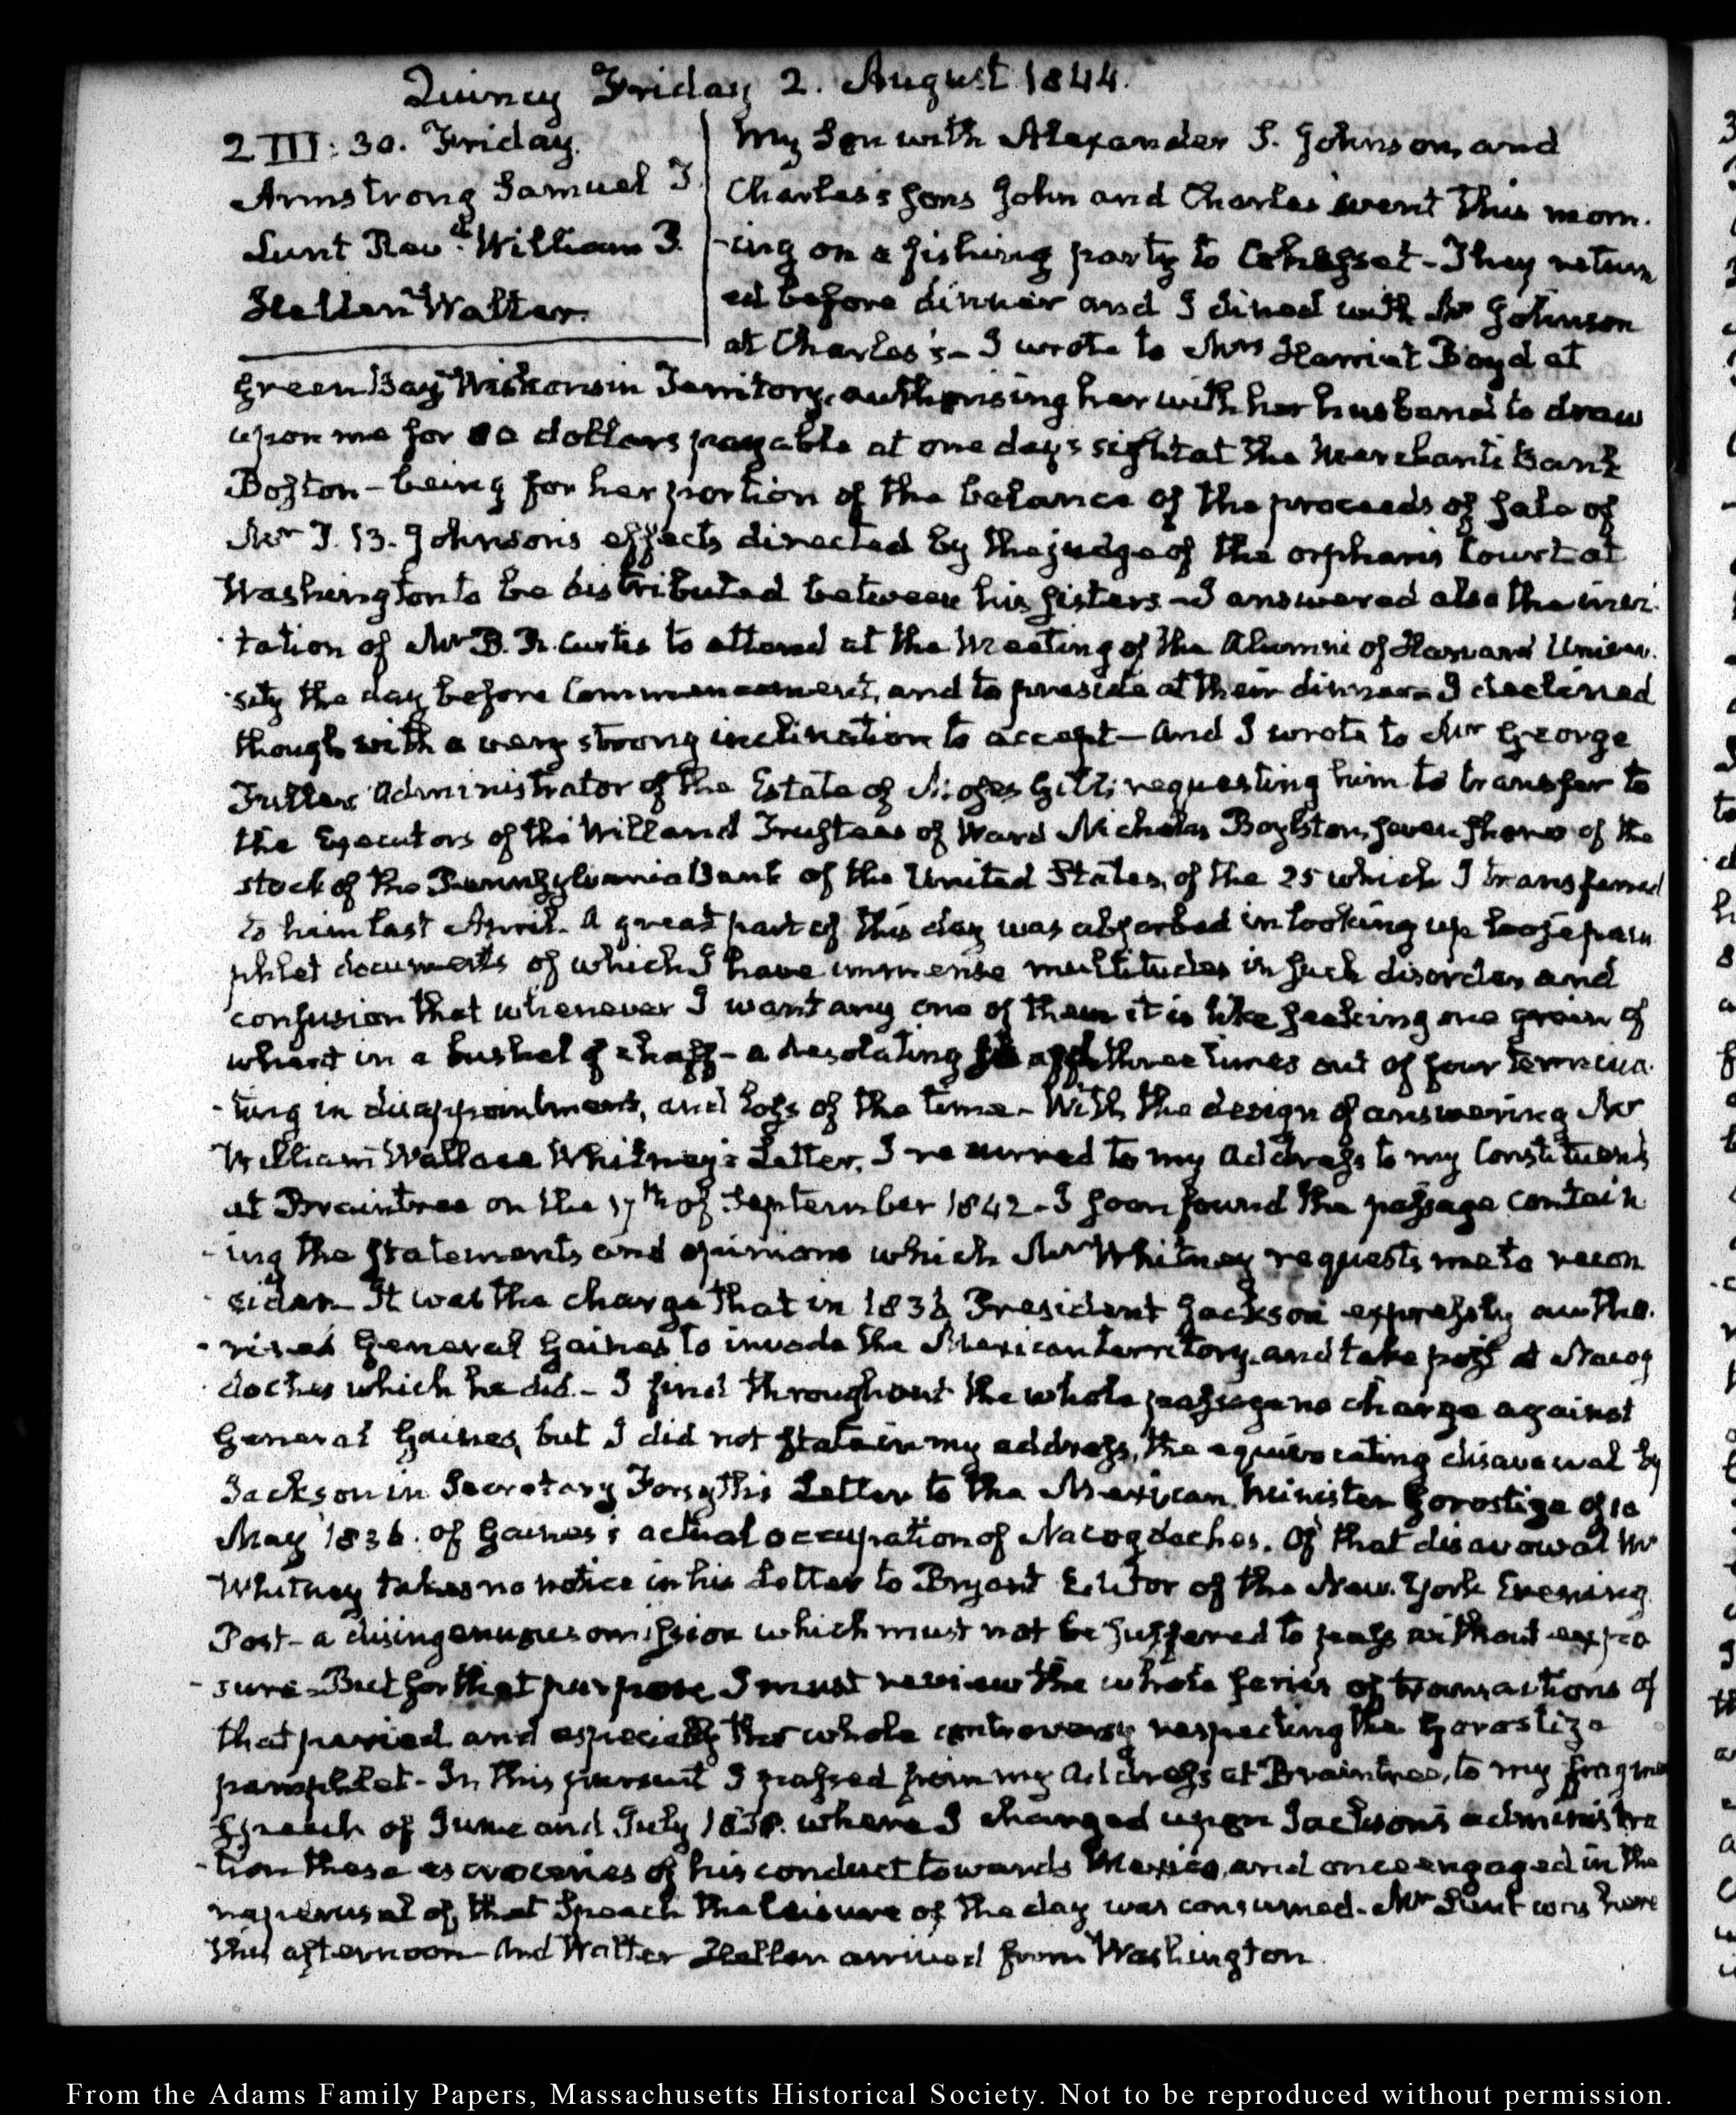 Quincy Friday 2. August 1844.
2 III: 30. Friday.
Armstrong Samuel T
Lunt Revd. William P.
Hellen Walter.
My Son with Alexander S. Johnson, and
Charles's sons John and Charles went this morn-
-ing on a fishing party to Cohasset - They return
ed before dinner and I dined with Mr Johnson
at Charles's - I wrote to Mrs Harriet Boyd at
Green Bay Wiskonsin Territory, authorising her with her husband to draw
upon me for 80 dollars payable at one day's sight at the Merchants Bank
Boston - being for her portion of the balance of the proceeds of sale of
Mr T. B. Johnson's effects directed by the judge of the orphan's Court at
Washington to be distributed between his sisters - I answered also the invi-
tation of Mr B. R. Curtis to attend at the Meeting of the Alumni of Harvard Univer-
-sity the day before Commencement, and to preside at their dinner - I declined
though with a very strong inclination to accept - And I wrote to Mr George
Fuller Administrator of the Estate of Moses Gill, requesting him to transfer to
the Executors of the Will and Trustees of Ward Nicholas Boylston, seven shares of the
stock of the Pennsylvania Bank of the United States, of the 25 which I transferred
to him last April. A great part of this day was absorbed in looking up loose pam
phlet documents of which I have immense multitudes in such disorder and
confusion that whenever I want any one of them it is like seeking one grain of
wheat in a bushel of chaff - a desolating three times out of four termina-
-ting in disappointment, and loss of the time - With the design of answering Mr
William Wallace Whitney's Letter, I recurred to my Address to my Constituents
at Braintree on the 17th of September 1842 - I soon found the passage contain
-ing the statements and opinions which Mr Whitney requests me to recon
sider - It was the charge that in 1836 President Jackson expressly autho-
-rised General Gaines to invade the Mexican territory, and take post at Nacog
doches which he did. - I find throughout the whole passage no charge against
General Gaines, but I did not state in my address, the equivocating disavowal by
Jackson in Secretary Forsyth's Letter to the Mexican Minister Gorostiza of 10
May 1836. of Gaines's actual occupation of Nacogdoches. Of that disavowal Mr
Whitney takes no notice in his Letter to Bryant Editor of the New-York Evening
Post - a disingenuous omission which must not be suffered to pass without expo
-sure - But for that purpose I must review the whole series of transactions of
that period and especially the whole controversy respecting the Gorostiza
pamphlet - In this pursuit I passed from my Address at Braintree, to my fragment
Speach of June and July 1838. where I charged upon Jackson's administra
-tion these of his conduct towards Mexico, and once engaged in the
reperusal of that Speach the leisure of the day was consumed - Mr Lunt was here
this afternoon - And Walter Hellen arrived from Washington.
From the Adams Family Papers, Massachusetts Historical Society. Not to be reproduced without permission.